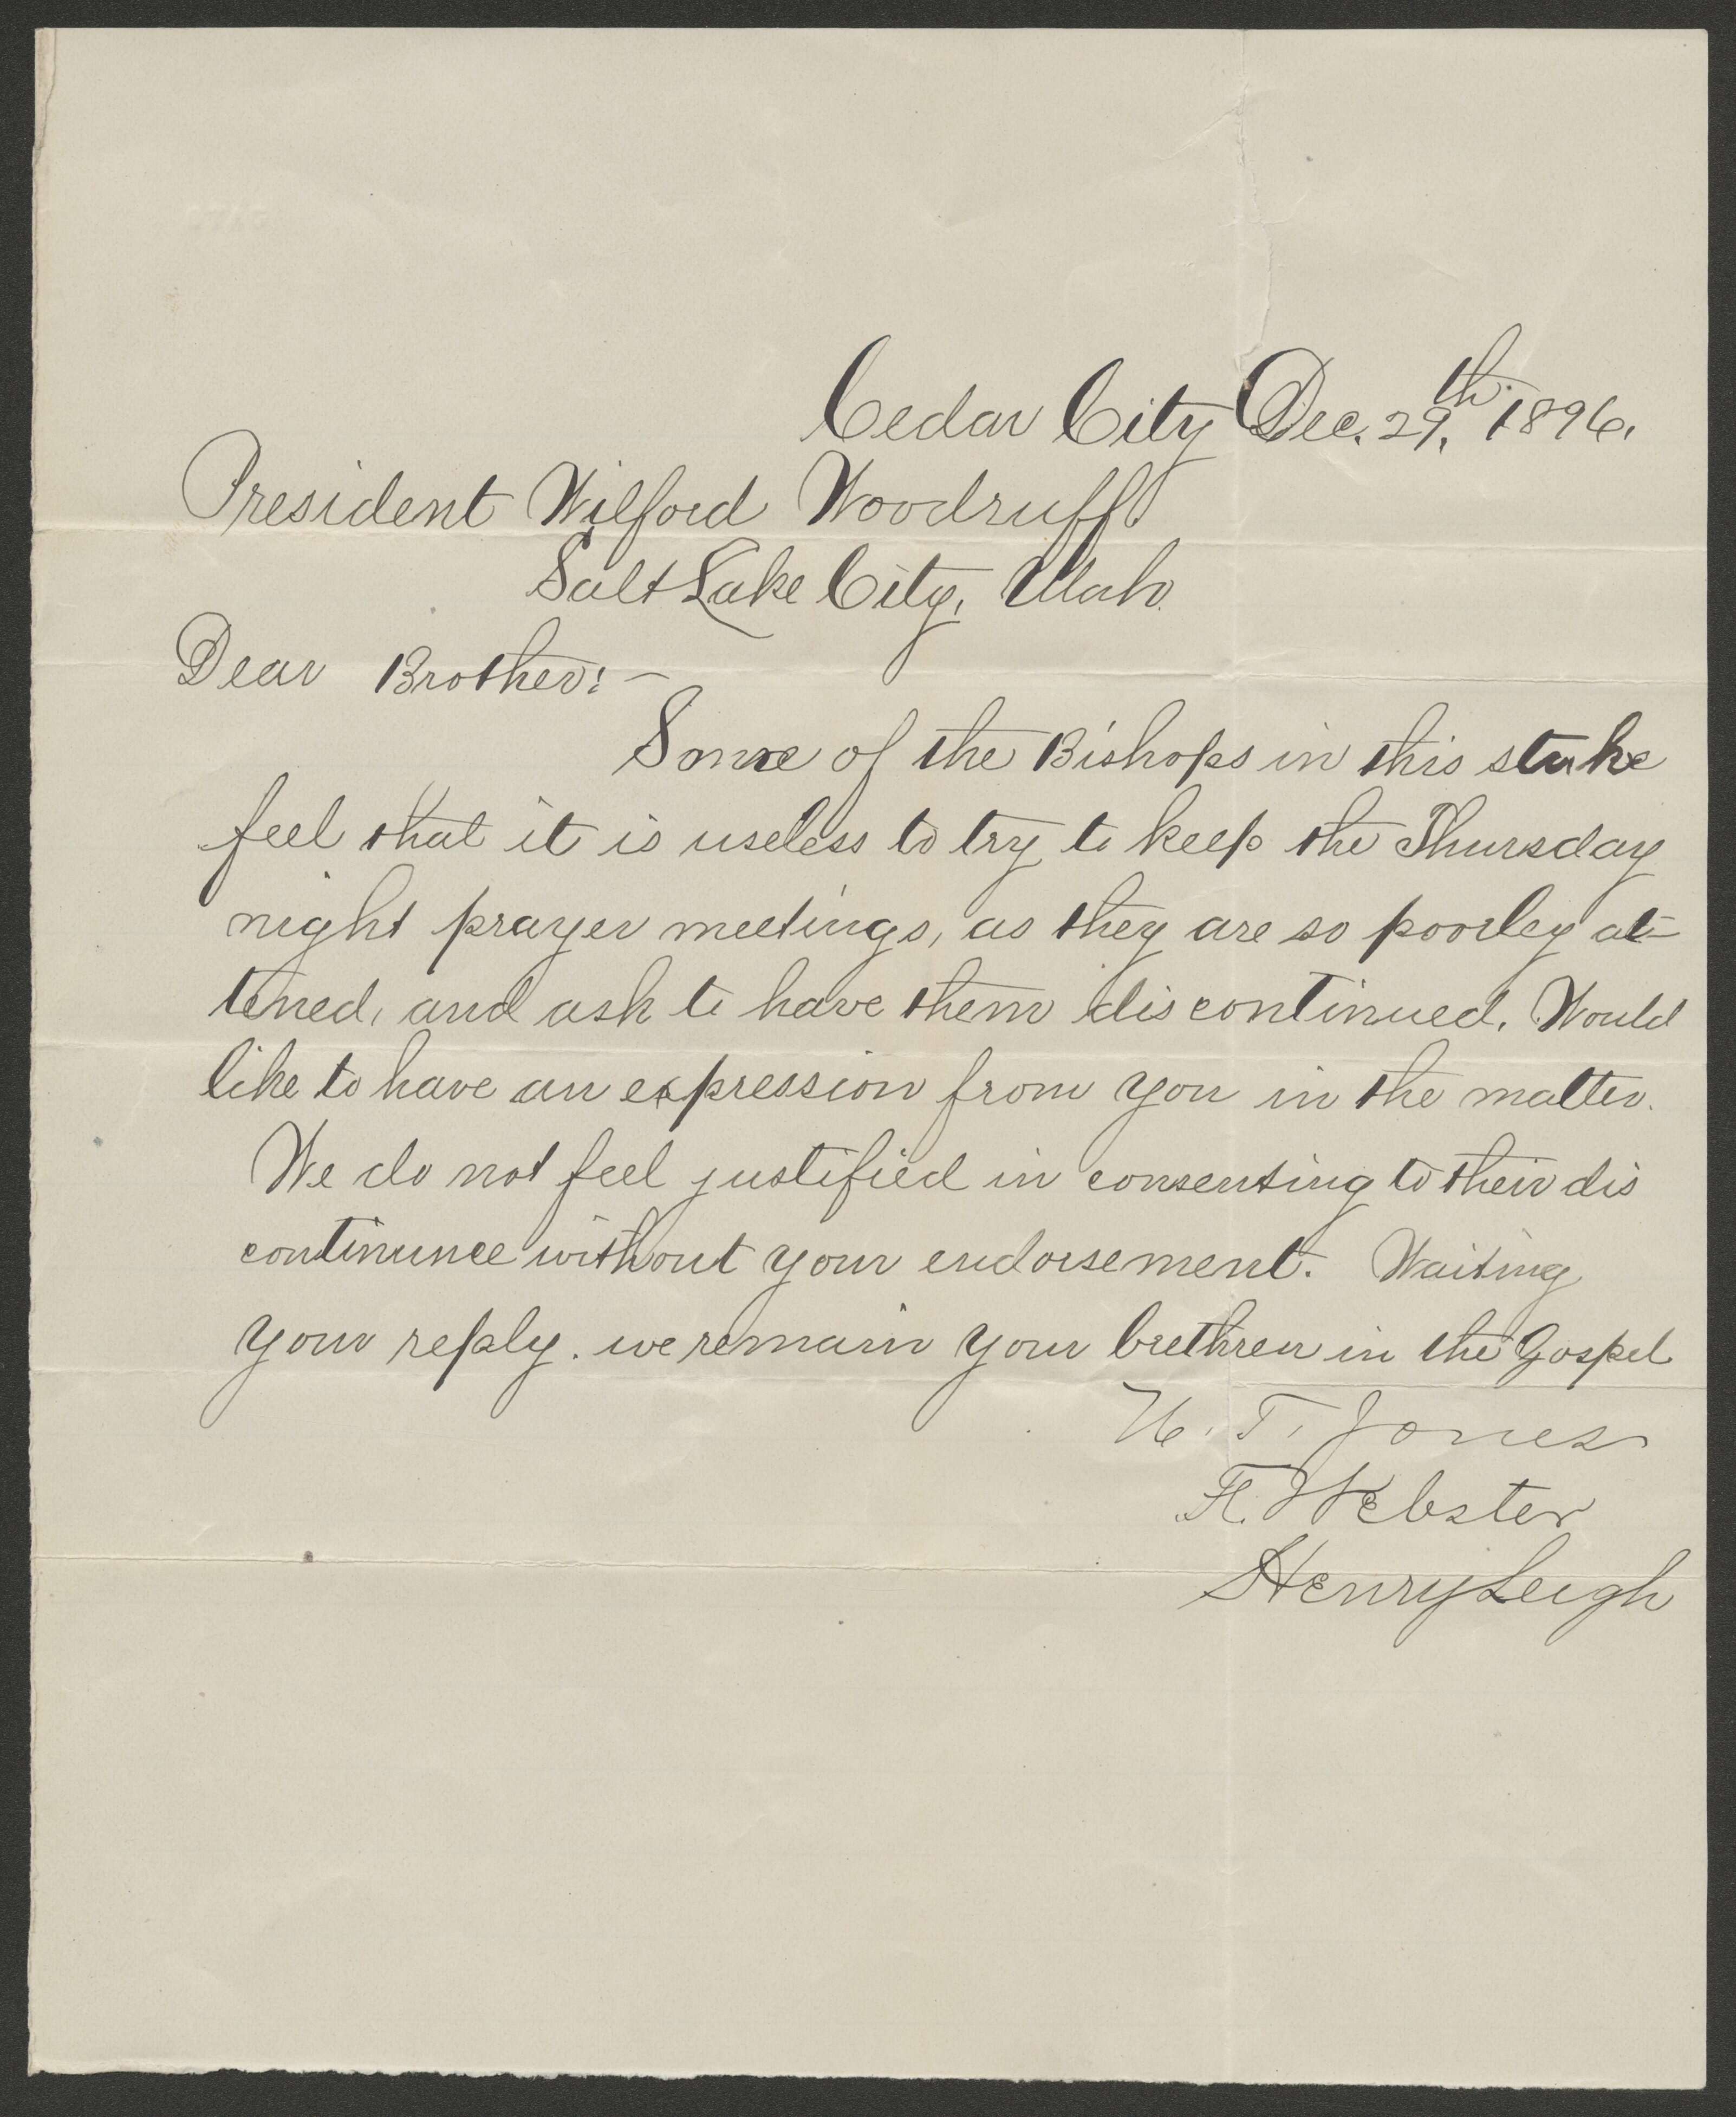 Cedar City Dec. 29th. 1896.
President Wilford Woodruff.
Salt Lake City, Utah.
Dear Brother:-
Some of the Bishops in this stake
feel that it is useless to try to keep the Thursday
night prayer meetings, as they are so poorley at-
tened, and ask to have them discontinued. Would
like to have an expression from you in the matter.
We do not feel justified in consenting to their dis
continunce without your endorsement. Waiting
your reply. we remain your brethren in the Gospel
U. T. Jones
F. Webster
Henry Leigh